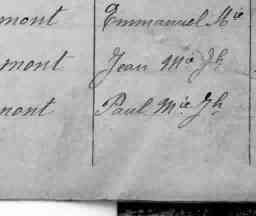 emont Emmanuel Mie
mont Jean Mie Jh
mont Paul Mie Jh